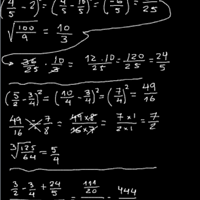 (4/5 - 2)² = (4/5 - 10/5)² = (-6/5)² = /25
√(100/9) = 10/3
36/25 · 10/3 = 12·10/25·10 = 120/25 = 24/5
(5/2 - 3/4)² = (10/4 - 3/4)² = (7/4)² = 49/16
49/16 : 7/8 = 49×8/16×7 = 7×1/2×1 = 7/2
∛(125/64) = 5/4
3/2 · 3/4 + 24/5 = 111/20 = 444